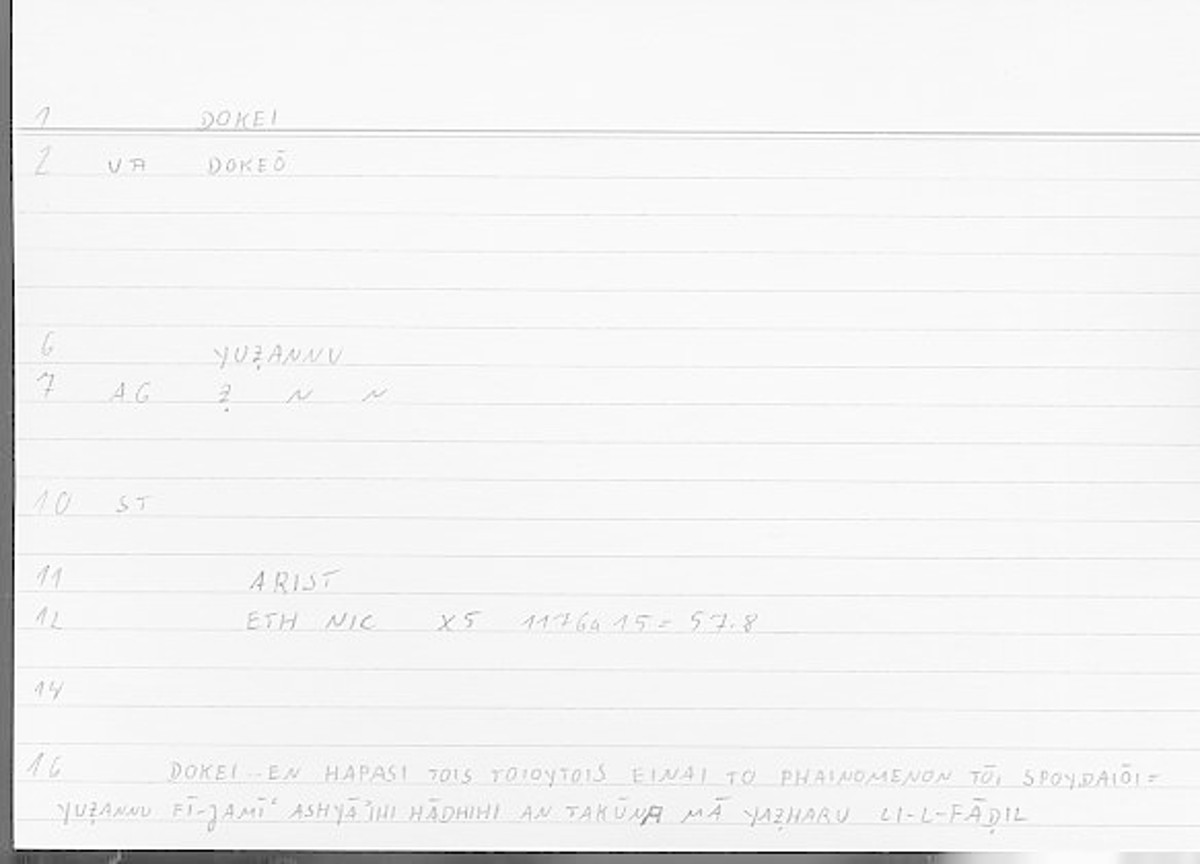 1 DOKEI
2 VA DOKEŌ
6 YUẒANNU
7 AG Ẓ N N
10 ST
11 ARIST
12 ETH NIC X5 1176a15 = 57.8
14
16 DOKEI --EN HAPASI TOIS TOIOYTOIS EINAI TO PHAINOMENON TŌI SPOYDAIŌI =
YUẒANNU FĪ-JAMĪʿ ASHYĀʾIHI HĀDHIHI AN TAKŪNA MĀ YAẒHARU LI-L-FĀḌIL